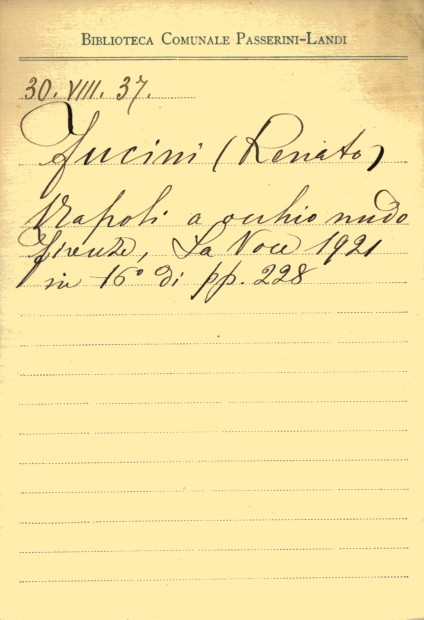 BIBLIOTECA COMUNALE PASSERINI-LANDI
30. VIII. 37.
Fucini (Renato)
Napoli a occhio nudo
Firenze, La Voce 1921
in 16° di pp. 228